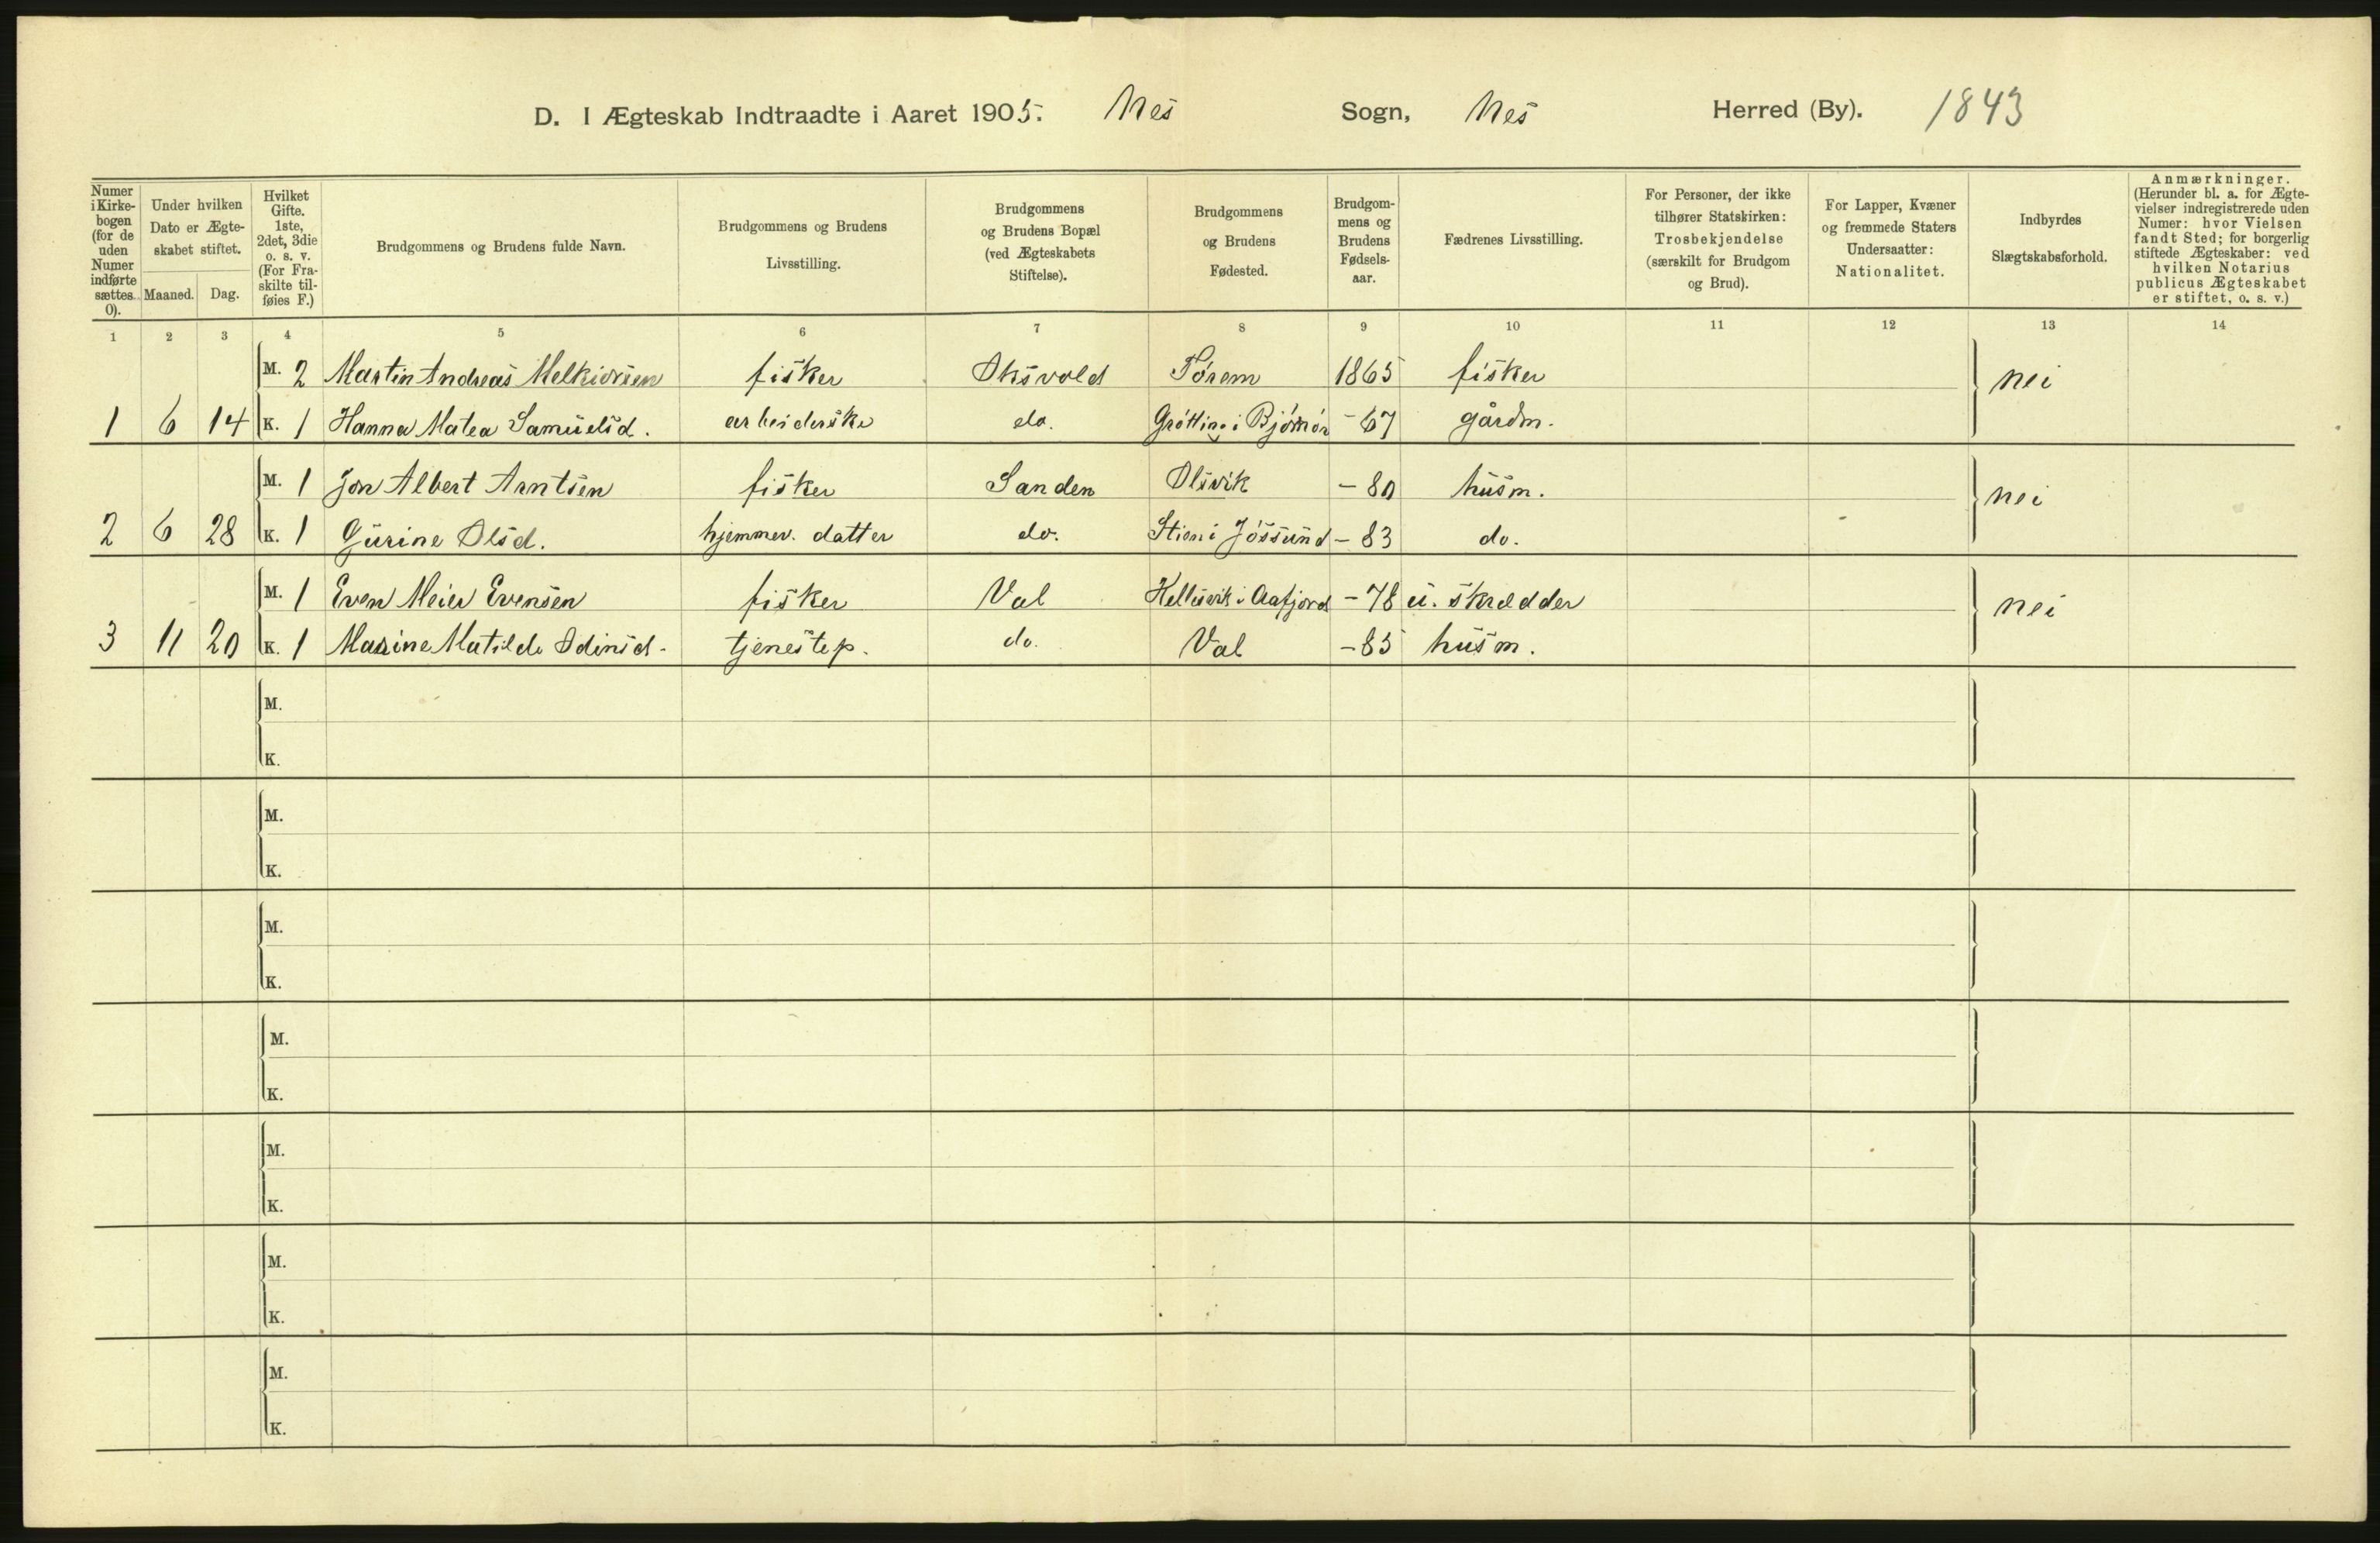 D. I Ægteskab Indtraadte i Aaret 1905. Nes Sogn, Nes Herred (By). 1843
Numer i Kirke-bogen (for de uden Numer indførte sættes 0).
Under hvilken Dato er Ægte-skabet stiftet.
Maaned. Dag.
Hvilket Gifte. 1ste, 2det, 3die o. s. v. (For Fra-skilte til-føies F.)
Brudgommens og Brudens fulde Navn.
Brudgommens og Brudens Livsstilling.
Brudgommens og Brudens Bopæl (ved Ægteskabets Stiftelse).
Brudgommens og Brudens Fødested.
Brudgom-mens og Brudens Fødsels-aar.
Fædrenes Livsstilling.
For Personer, der ikke tilhører Statskirken: Trosbekjendelse (særskilt for Brudgom og Brud).
For Lapper, Kvæner og fremmede Staters Undersaatter: Nationalitet.
Indbyrdes Slægtskabsforhold.
Anmærkninger. (Herunder bl. a. for Ægte-vielser indregistrerede uden Numer: hvor Vielsen fandt Sted; for borgerlig stiftede Ægteskaber: ved hvilken Notarius publicus Ægteskabet er stiftet, o. s. v.)
1 2 3 4 5 6 7 8 9 10 11 12 13 14
M. 2 Martin Andreas Melkiorsen fisker Oksvold Tørem 1865 fisker nei
1 6 14 K. 1 Hanna Matea Samuelsd. arbeiderske do. Grötting i Bjömör - 67 gårdm.
M. 1 Jon Albert Arntsen fisker Sanden Olsvik - 80 husm. nei
2 6 28 K. 1 Gurine Olsd. hjemmev. datter do. i Jössund - 83 do.
M. 1 Even Meier Evensen fisker Val Hellesvik i Aafjord - 78 u. skredder nei
3 11 20 K. 1 Masine Matilde Odinsd. tjenestep. do. Val - 85 husm.
M.
K.
M.
K.
M.
K.
M.
K.
M.
K.
M.
K.
M.
K.